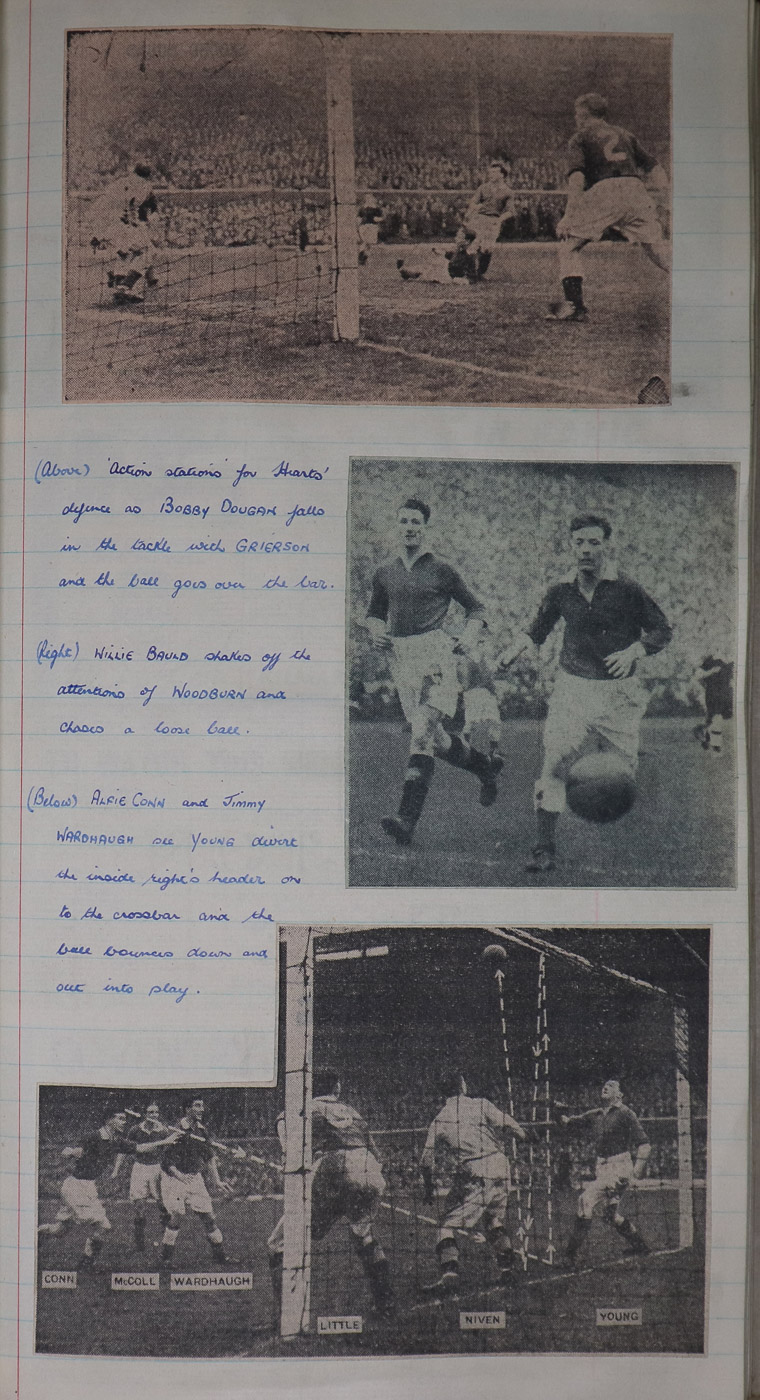 2
(Above) 'Action stations' for Hearts'
defence as BOBBY DOUGAN falls
in the tackle with GRIERSON
and the ball goes over the bar.
(Right) WILLIE BAULD shakes off the
attentions of WOODBURN and
chases a loose ball.
(Below) ALFIE CONN and Jimmy
WARDHAUGH see YOUNG divert
the inside right's header on
to the crossbar and the
ball bounces down and
out into play.
CONN McCOLL WARDHAUGH
LITTLE NIVEN YOUNG